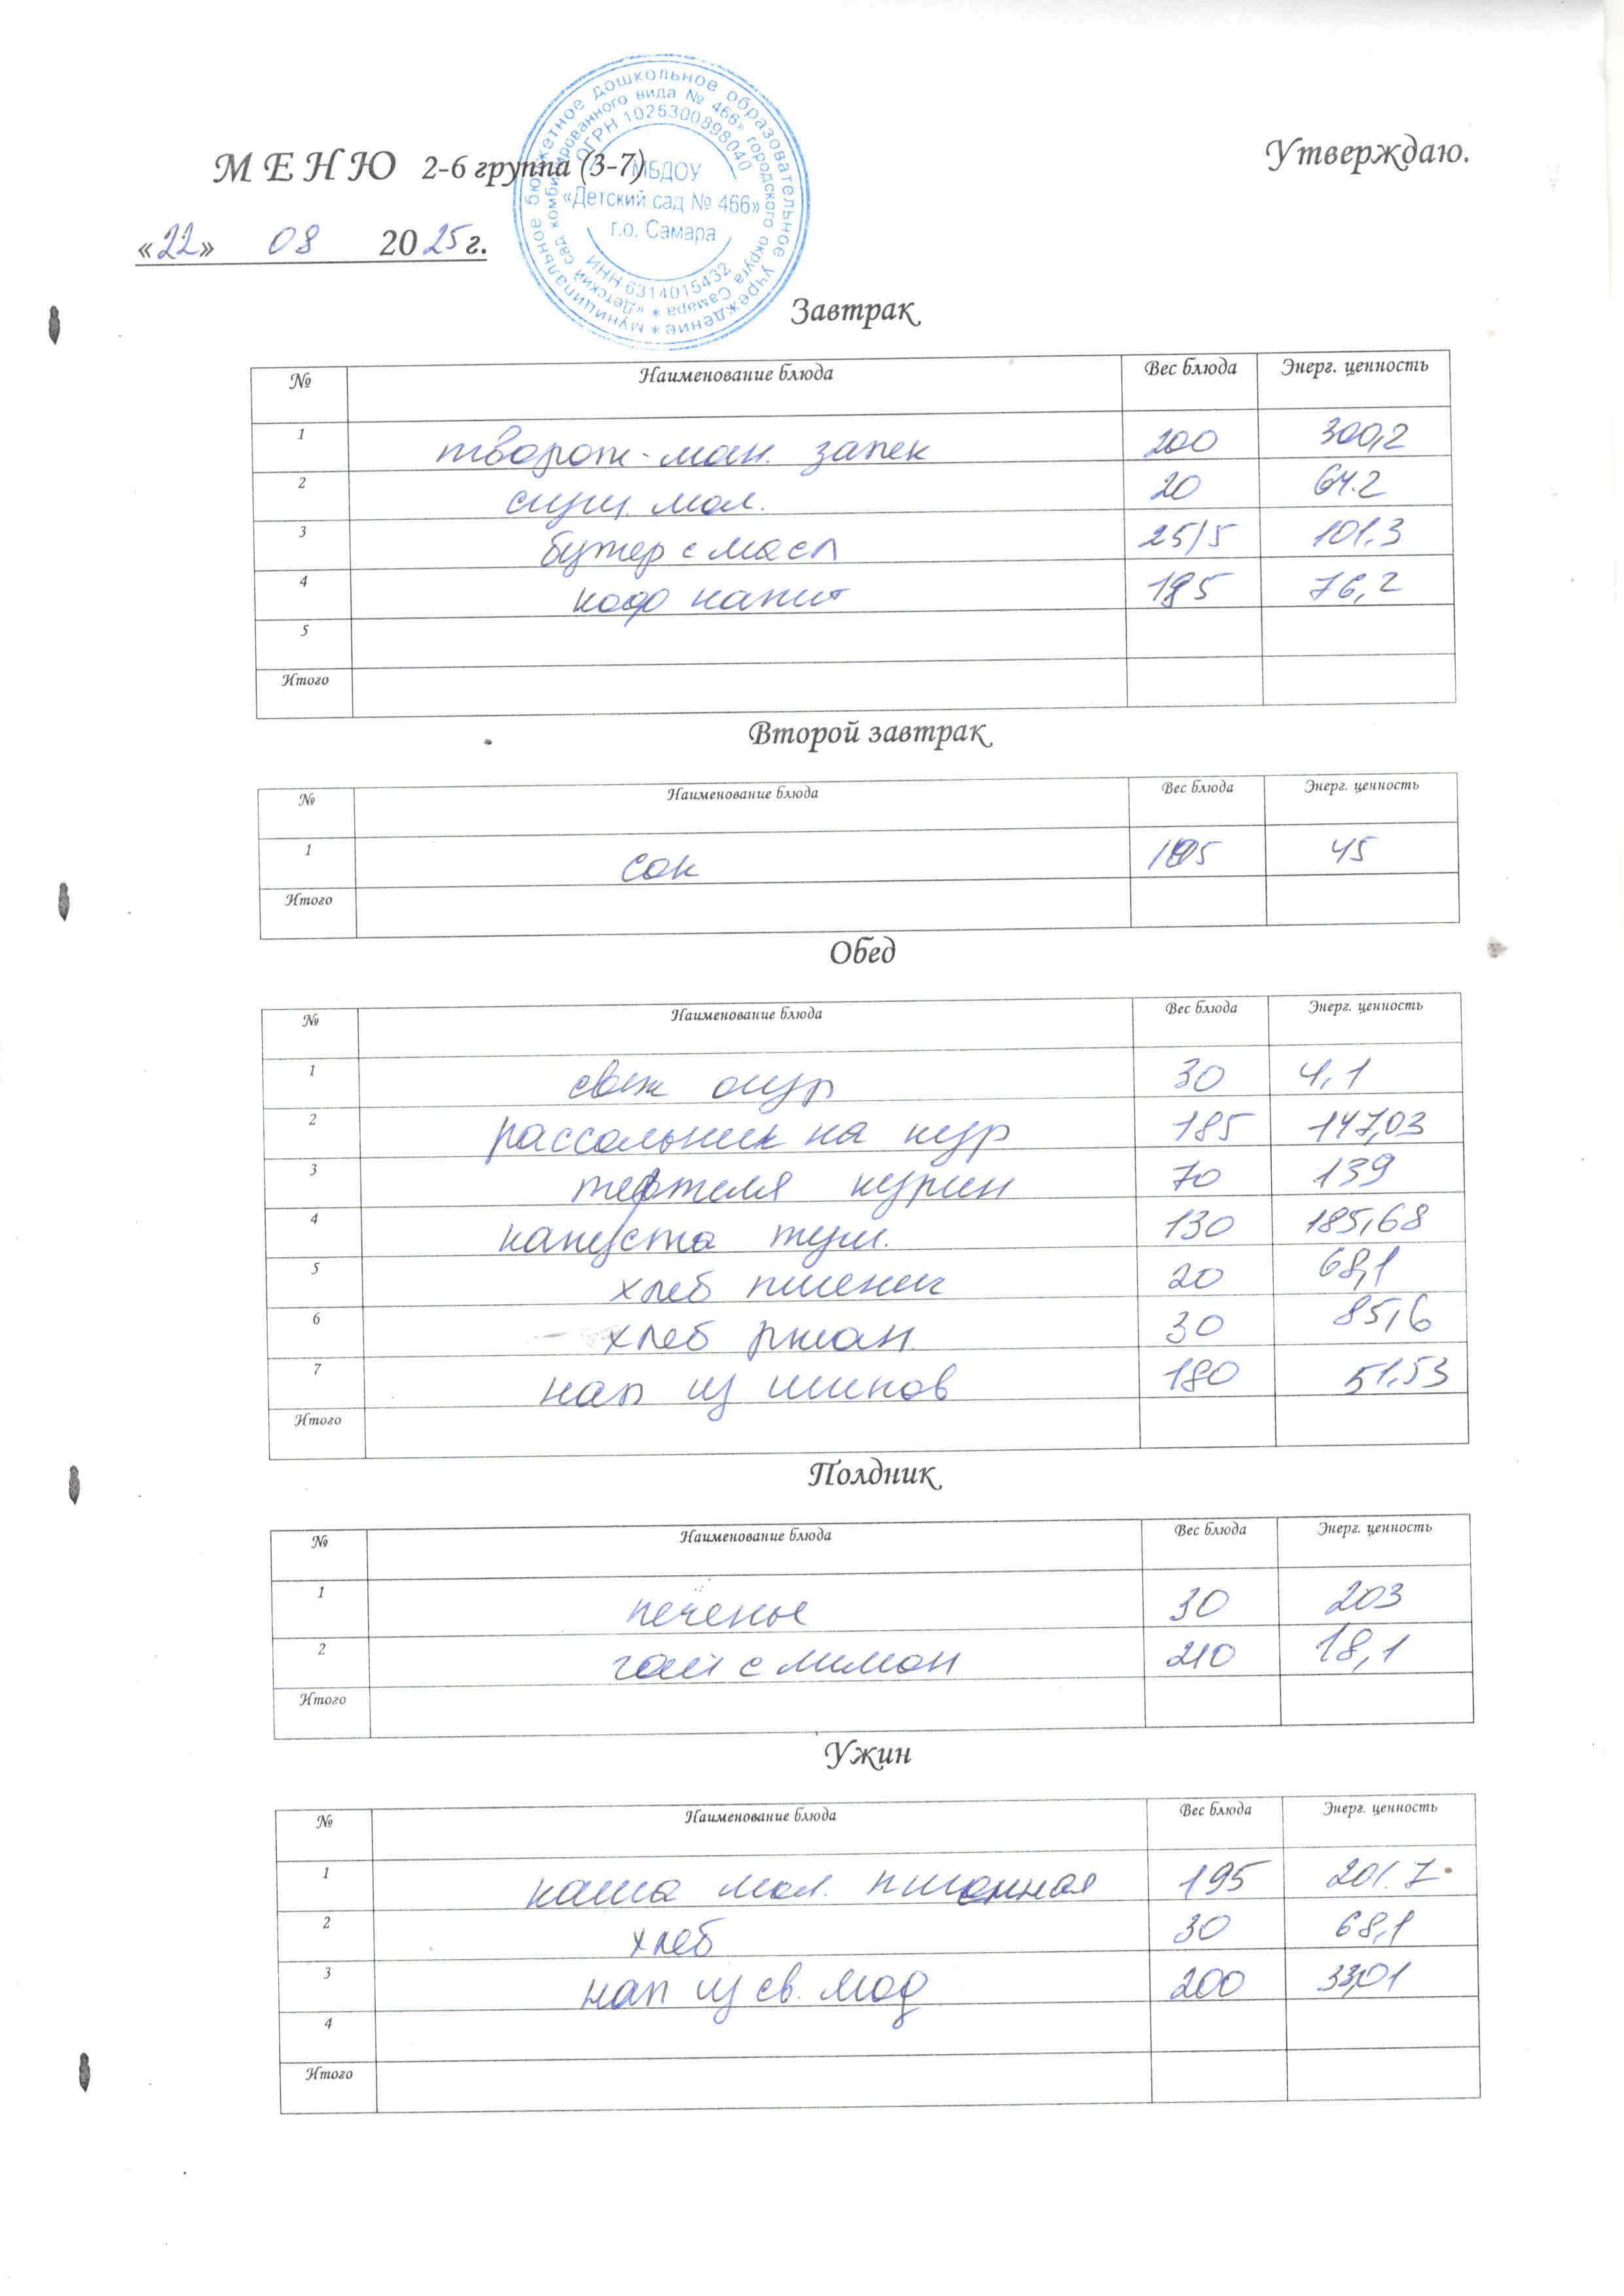 муниципальное бюджетное дошкольное образовательное учреждение *
«Детский сад комбинированного вида № 466» городского округа Самара *
ОГРН 1026300898040
МБДОУ
«Детский сад № 466»
г.о. Самара
ИНН 6314015432
Утверждаю.
М Е Н Ю 2-6 группа (3-7)
«22» 08 2025г.
Завтрак
№ Наименование блюда Вес блюда Энерг. ценность
1 творож-ман. запек 200 300,2
2 сгущ. мол. 20 64.2
3 бутер с масл 25/5 101.3
4 коф напит 185 76,2
5
Итого
Второй завтрак
№ Наименование блюда Вес блюда Энерг. ценность
1 сок 45
Итого
Обед
№ Наименование блюда Вес блюда Энерг. ценность
1 свеж огур 30 4,1
2 рассольник на кур 185 147,03
3 тефтеля курин 70 139
4 капуста туш. 130 185,68
5 хлеб пшенич 20 68,1
6 хлеб ржан. 30 85,6
7 нап из шипов 180 51,53
Итого
Полдник
№ Наименование блюда Вес блюда Энерг. ценность
1 печенье 30 203
2 чай с лимон 210 18,1
Итого
Ужин
№ Наименование блюда Вес блюда Энерг. ценность
1 каша мол. пшенная 195 201.7
2 хлеб 30 68,1
3 нап из св. 200 33,01
4
Итого